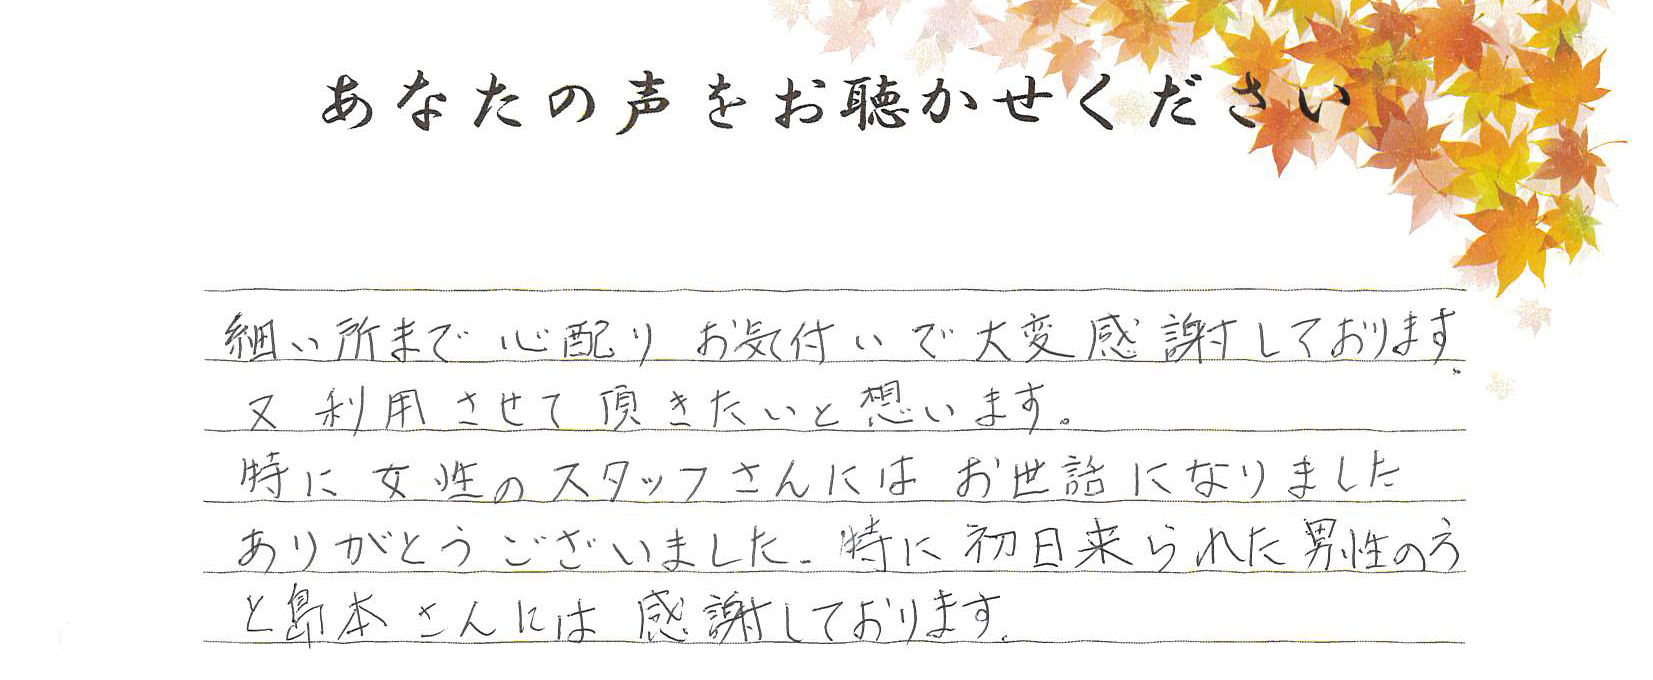 あなたの声をお聴かせください
細い所まで心配りお気付いで大変感謝しております。
又利用させて頂きたいと想います。
特に女性のスタッフさんにはお世話になりました
ありがとうございました。特に初日来られた男性の方
と島本さんには感謝しております。